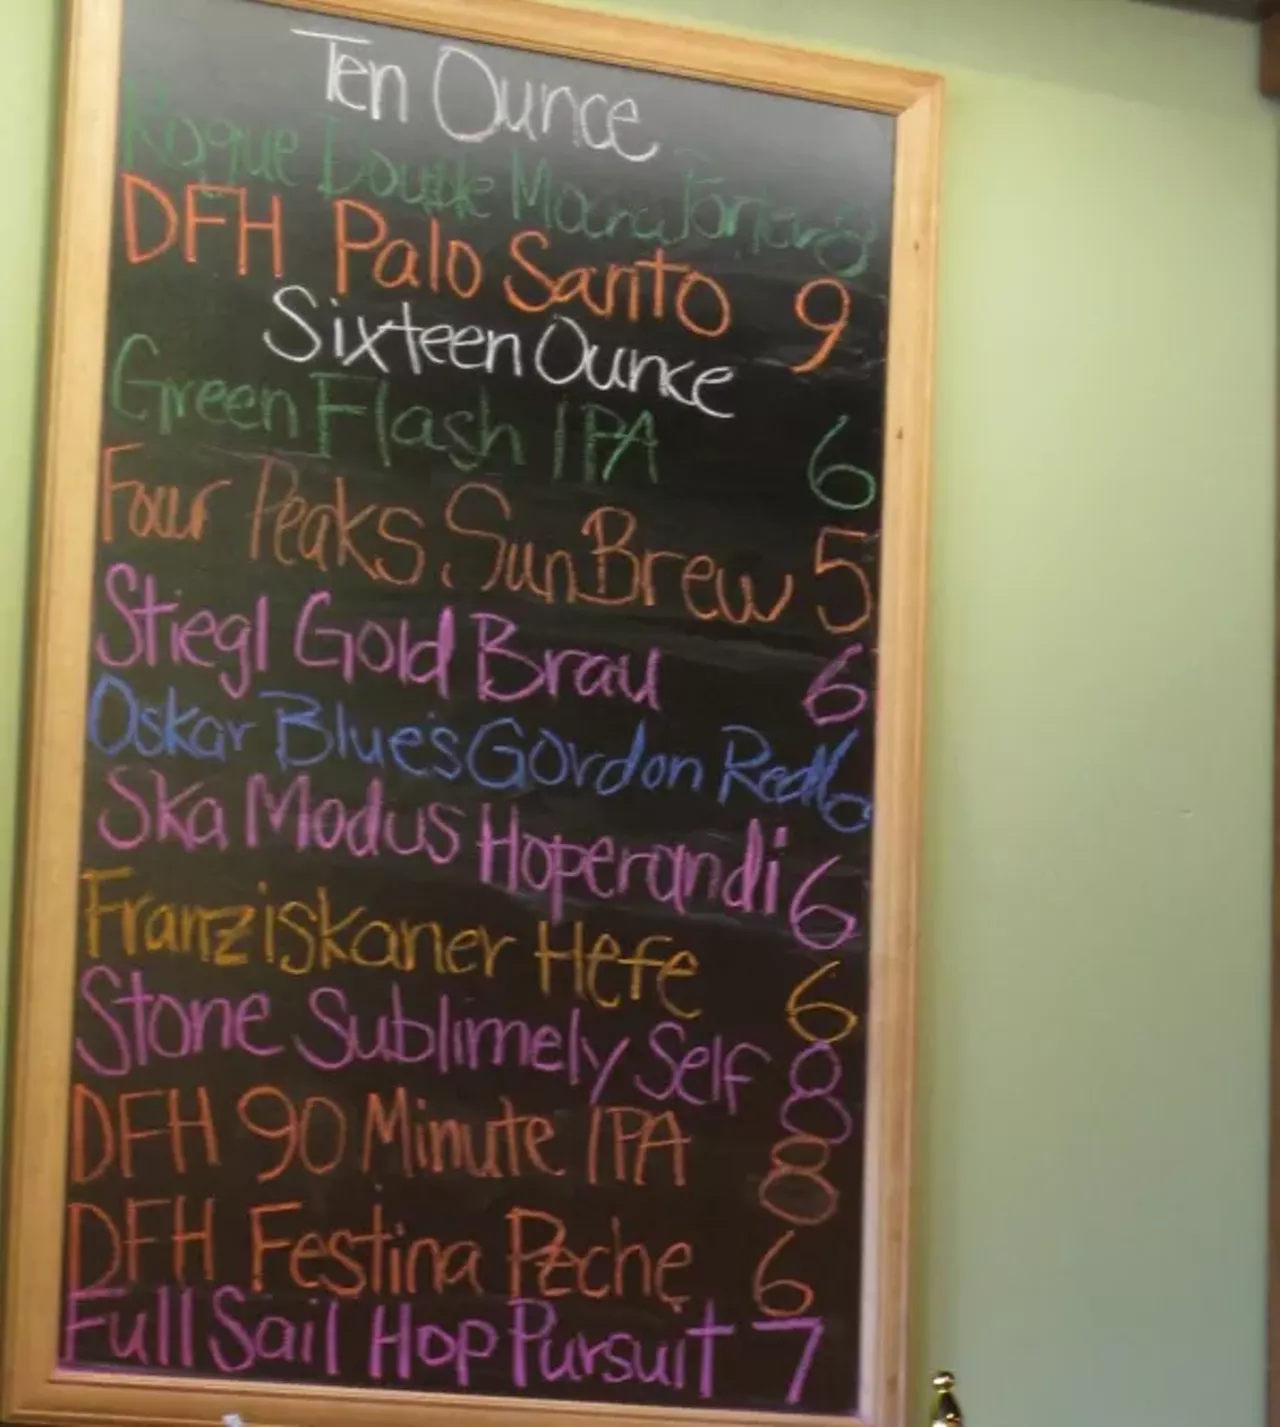 Ten Ounce
Rogue Double Mocha Porter 8
DFH Palo Santo 9
Sixteen Ounce
Green Flash IPA 6
Four Peaks SunBrew 5
Stiegl Gold Brau 6
Oskar Blues Gordon Red 6
Ska Modus Hoperandi 6
Franziskaner Hefe 6
Stone Sublimely Self 8
DFH 90 Minute IPA 8
DFH Festina Peche 6
Full Sail Hop Pursuit 7